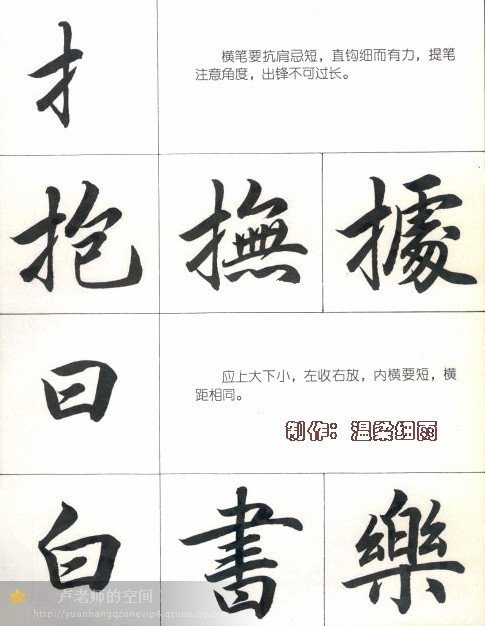 扌
横笔要抗肩忌短，直钩细而有力，提笔
注意角度，出锋不可过长。
抱 撫 據
曰
应上大下小，左收右放，内横要短，横
距相同。
制作：温柔细丽
白 書 樂
卢老师的空间
http://yuanhangqzonevip4.qzone.qq.com